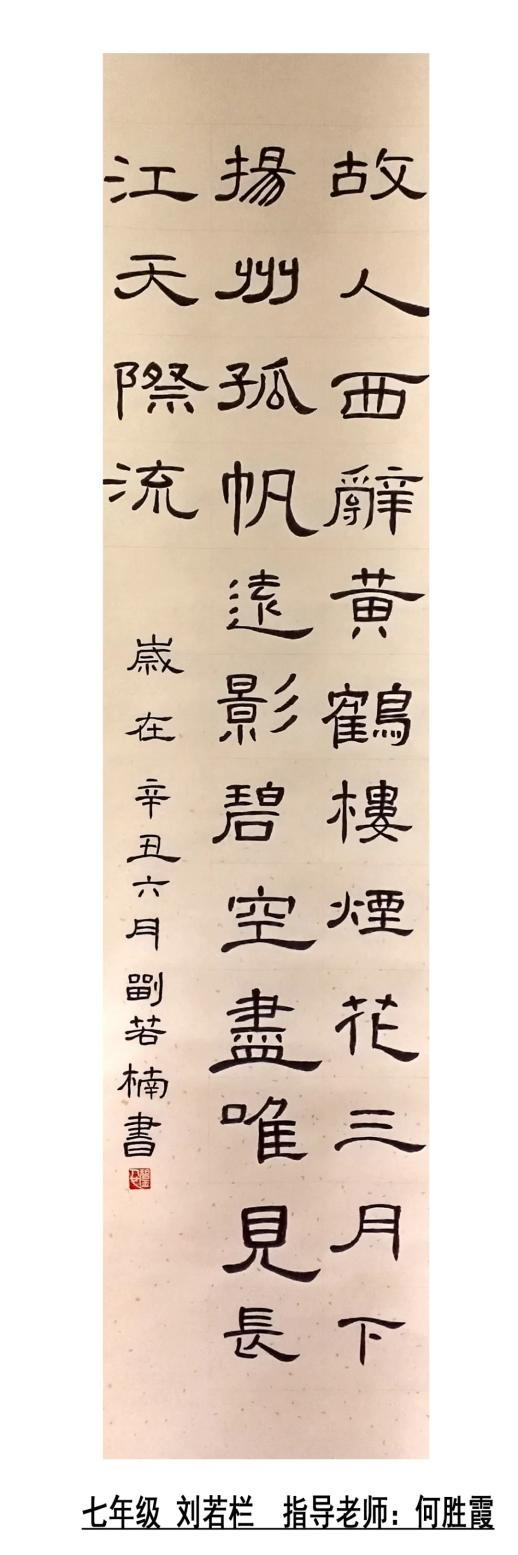 故人西辭黃鶴樓煙花三月下
揚州孤帆遠影碧空盡唯見長
江天際流
歲在辛丑六月劉若楠書
七年级 刘若栏 指导老师：何胜霞